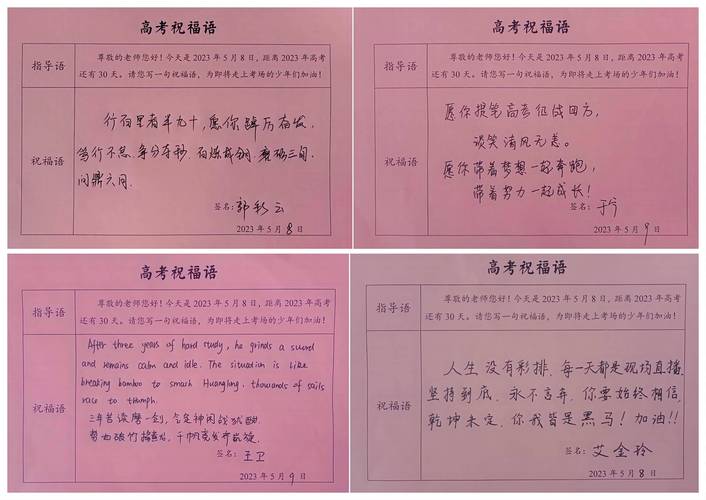 高考祝福语
指导语
尊敬的老师您好！今天是 2023 年 5 月 8 日，距离 2023 年高考
还有 30 天。请您写一句祝福语，为即将走上考场的少年们加油！
祝福语
行百里者半九十，愿你踔厉奋发，
笃行不怠，争分夺秒，百炼成钢，磨砺三旬，
问鼎六月。
签名：郭彩云
2023 年 5 月 8 日
高考祝福语
指导语
尊敬的老师您好！今天是 2023 年 5 月 8 日，距离 2023 年高考
还有 30 天。请您写一句祝福语，为即将走上考场的少年们加油！
祝福语
愿你提笔高考征战四方，
谈笑清风无恙。
愿你带着梦想一起奔跑，
带着努力一起成长！
签名：于
2023 年 5 月 9 日
高考祝福语
指导语
尊敬的老师您好！今天是 2023 年 5 月 8 日，距离 2023 年高考
还有 30 天。请您写一句祝福语，为即将走上考场的少年们加油！
祝福语
After three years of hard study, he grinds a sword
and remains calm and idle. The situation is like
breaking bamboo to smash Huanglong, thousands of sails
race to triumph.
三年苦读磨一剑，气定神闲战犹酣
势如破竹捣黄龙，千帆竞发齐凯旋。
签名：王卫
2023 年 5 月 9 日
高考祝福语
指导语
尊敬的老师您好！今天是 2023 年 5 月 8 日，距离 2023 年高考
还有 30 天。请您写一句祝福语，为即将走上考场的少年们加油！
祝福语
人生没有彩排，每一天都是现场直播，
坚持到底，永不言弃，你要始终相信，
乾坤未定，你我皆是黑马！加油!!
签名：艾金玲
2023 年 5 月 8 日